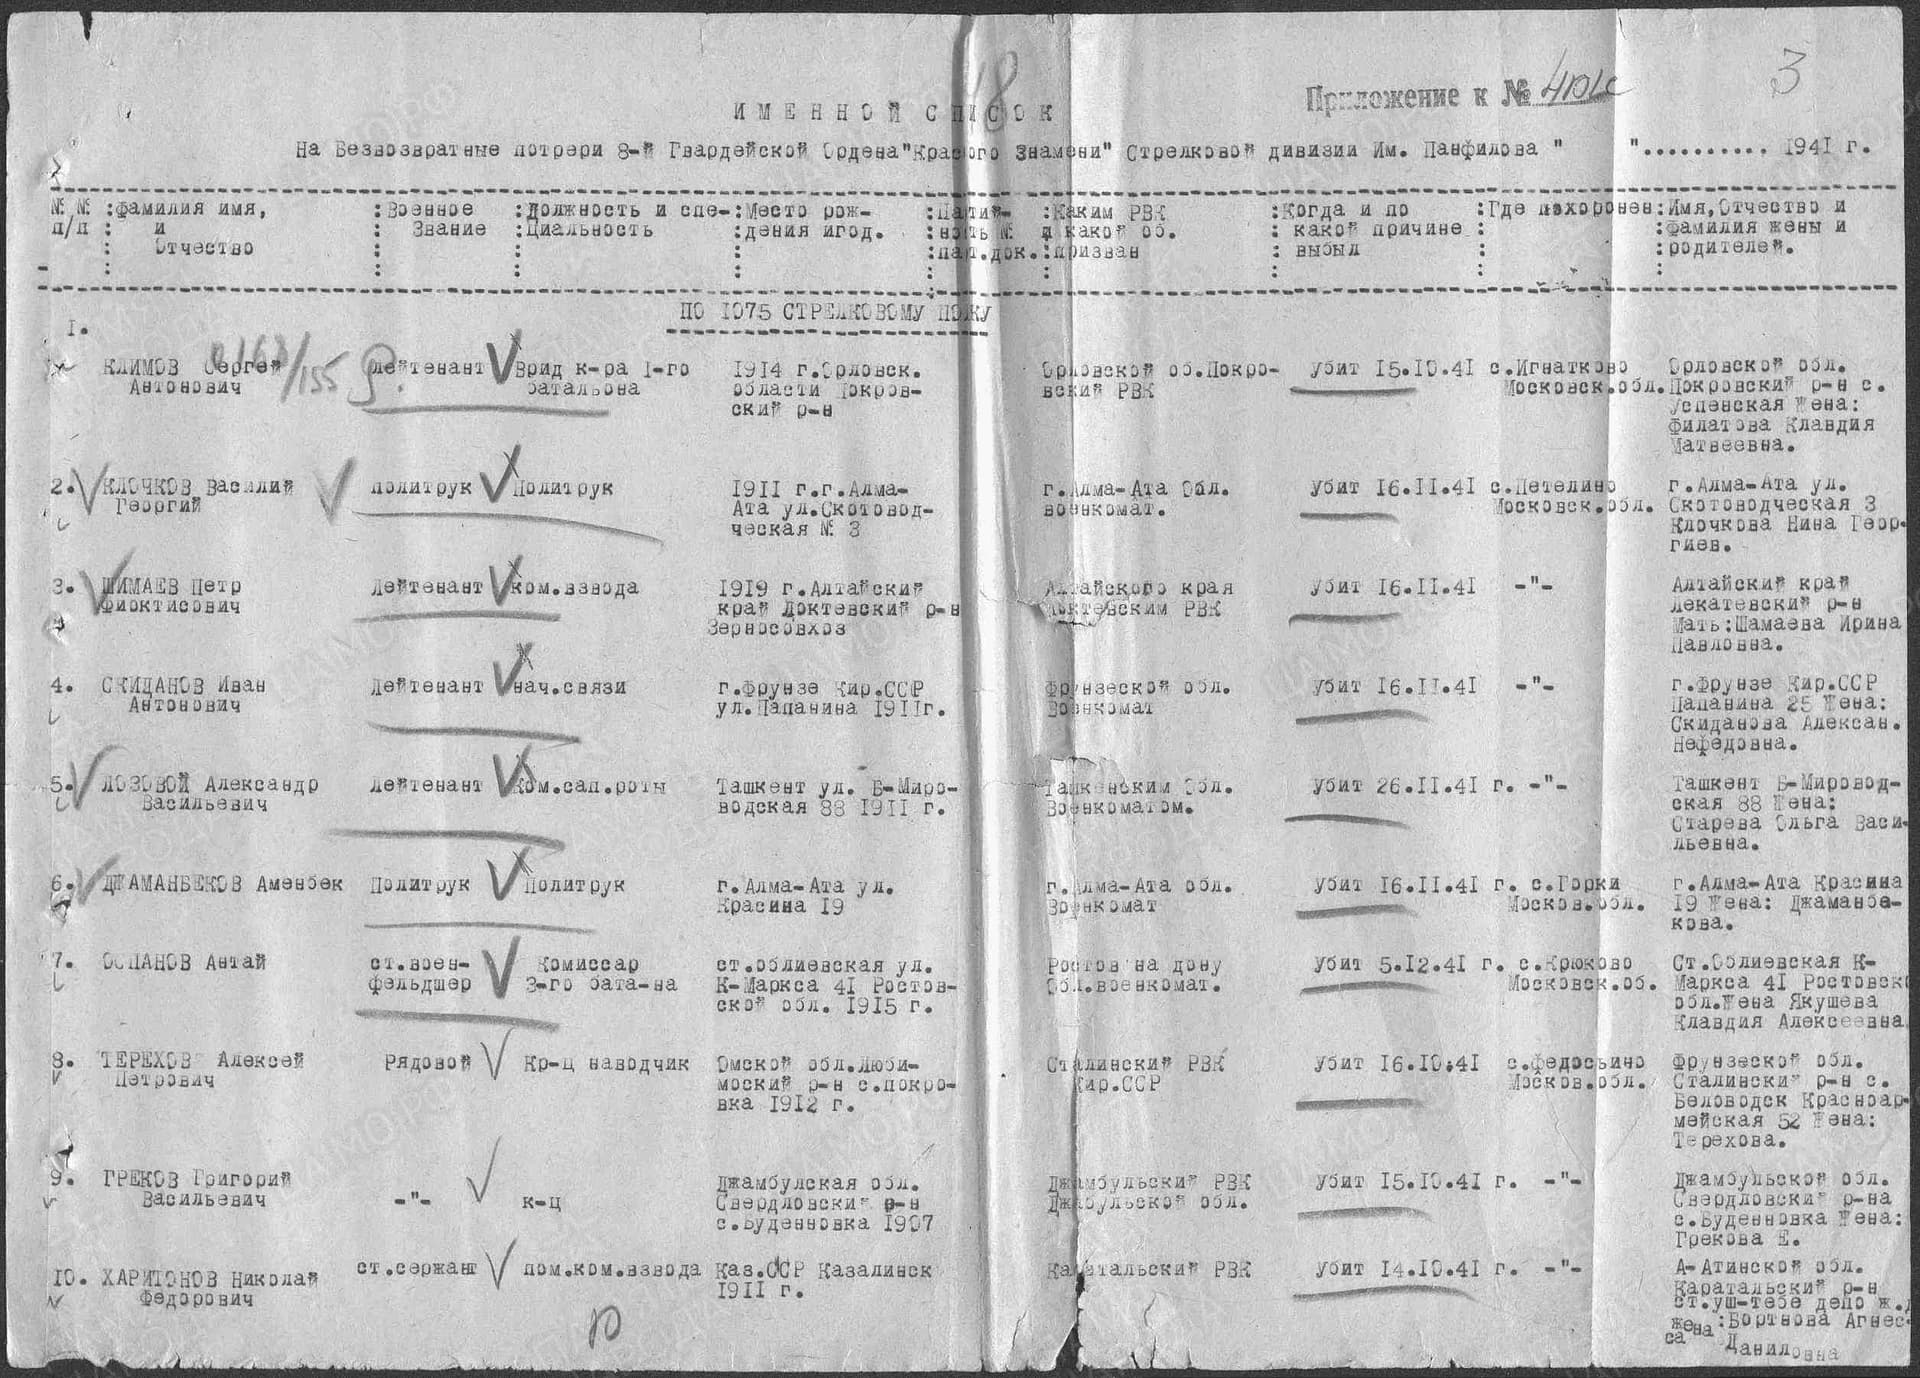 3
Приложение к №
ИМЕННОЙ СПИСОК
На Безвозвратные потрери 8-й Гвардейской Ордена "Красного Знамени" Стрелковой дивизии Им. Панфилова " ".......... 1941 г.
№ № :фамилия имя, :Военное :Должность и спе-:Место рож- :Партий- :Каким РВК :Когда и по :Где похоронен:Имя,Отчество и
п/п : и : Звание :циальность :дения игод. :ность № и какой об. : какой причине : :фамилия жены и
: Отчество : : : :парт.док.:призван : выбыл : :родителей.
ПО 1075 СТРЕЛКОВОМУ ПОЛКУ
I.
КЛИМОВ Сергей лейтенант Врид к-ра I-го 1914 г.Орловск. Орловской об.Покро- убит 15.10.41 с.Игнатково Орловской обл.
Антонович батальона области Покров- вский РВК Московск.обл. Покровский р-н с.
ский р-н Успенская Жена:
Филатова Клавдия
Матвеевна.
2. КЛОЧКОВ Василий политрук Политрук 1911 г.г.Алма- г.Алма-Ата Обл. убит 16.11.41 с.Петелино г.Алма-Ата ул.
Георгий Ата ул.Скотовод- военкомат. Московск.обл. Скотоводческая 3
ческая № 3 Клочкова Нина Геор-
гиев.
3. ШИМАЕВ Петр Лейтенант ком.взвода 1919 г.Алтайский Алтайского края убит 16.11.41 -"- Алтайский край
Фиоктисович край Локтевский р-н Локтевским РВК Лекатевский р-н
Зерносовхоз Мать:Шамаева Ирина
Павловна.
4. СКИДАНОВ Иван Лейтенант нач.связи г.Фрунзе Кир.ССР Фрунзеской обл. убит 16.11.41 -"- г.Фрунзе Кир.ССР
Антонович ул.Папанина 1911г. Военкомат Папанина 25 Жена:
Скиданова Алексан.
Нефедовна.
5. ЛОЗОВОЙ Александр Лейтенант Ком.сап.роты Ташкент ул. Б-Миро- Ташкенским Обл. убит 26.11.41 г. -"- Ташкент Б-Мировод-
Васильевич водская 88 1911 г. Военкоматом. ская 88 Жена:
Старева Ольга Васи-
льевна.
6. ДЖАМАНБЕКОВ Аменбек Политрук Политрук г.Алма-Ата ул. г.Алма-Ата обл. убит 16.11.41 г. с.Горки г.Алма-Ата Красина
Красина 19 Военкомат Москов.обл. 19 Жена: Джаманбе-
кова.
7. ОСПАНОВ Антай ст.воен- Комиссар ст.облиевская ул. Ростов на дону убит 5.12.41 г. с.Крюково Ст.Облиевская К-
фельдшер 3-го бата-на К-Маркса 41 Ростов- Обл.военкомат. Московск.об. Маркса 41 Ростовско
ской обл. 1915 г. обл.Жена Якушева
Клавдия Алексеевна
8. ТЕРЕХОВ Алексей Рядовой Кр-ц наводчик Омской обл.Люби- Сталинский РВК убит 16.10.41 с.Федосьино Фрунзеской обл.
Петрович моский р-н с.покро- Кир.ССР Москов.обл. Сталински р-н с.
вка 1912 г. Беловодск Красноар-
мейская 52 Жена:
Терехова.
9. ГРЕКОВ Григорий -"- к-ц Джамбулская обл. Джамбульский РВК убит 15.10.41 г. -"- Джамбульской обл.
Васильевич Свердловский р-н Джабульской обл. Свердловский р-на
с.Буденновка 1907 с.Буденновка Жена:
Грекова Е.
10. ХАРИТОНОВ Николай ст.сержант пом.ком.взвода Каз.ССР Казалинск Каратальский РВК убит 14.10.41 г. -"- А-Атинской обл.
Федорович 1911 г. Каратальский р-н
ст.уш-тебе депо ж.д
жена:Бортнова Агнес-
са Даниловна